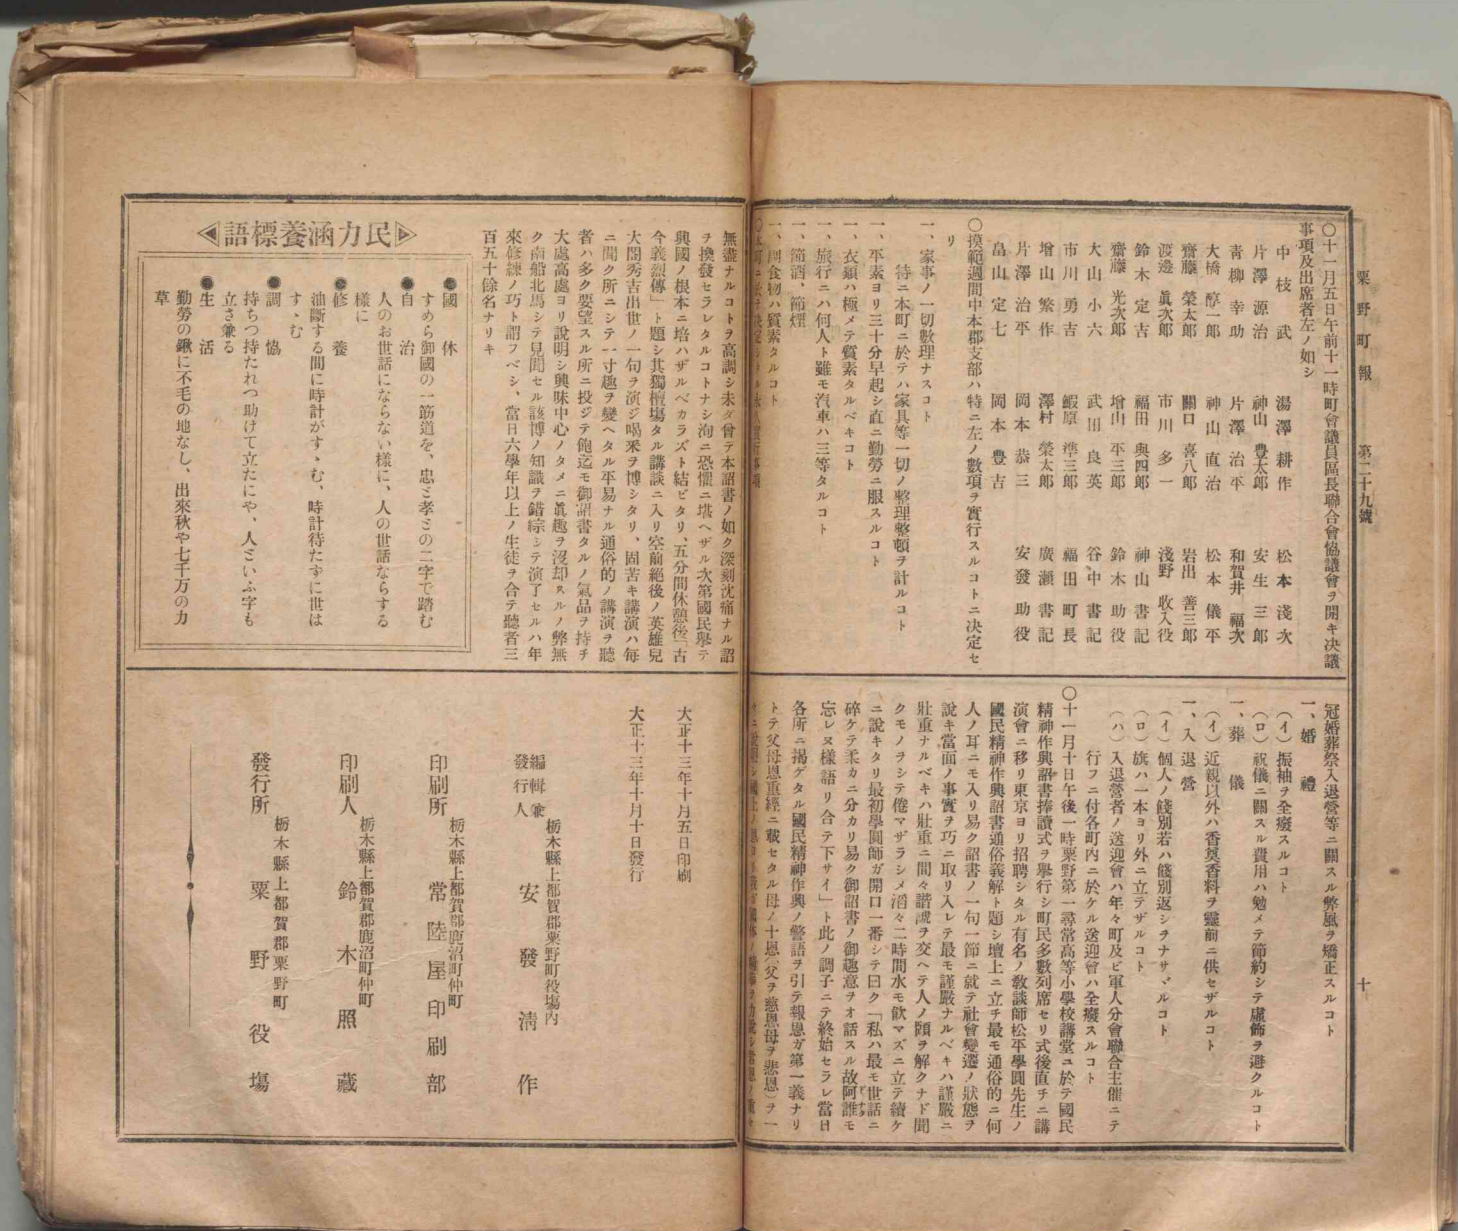 粟野町報
第二十九號
十
〇十一月五日午前十一時町會議員區長聯合會協議會ヲ開キ決議
事項及出席者左ノ如シ
中枝武 湯澤耕作 松本淺次
片澤源治 神山豊太郎 安生三郎
青柳幸助 片澤治平 和賀井福次
大橋醇一郎 神山直治 松本儀平
齋藤榮太郎 關口喜八郎 岩出善三郎
渡邊眞次郎 市川多一 淺野收入役
鈴木定吉 福田與四郎 神山書記
齋藤光次郎 增山平三郎 鈴木助役
大山小六 武田良英 谷中書記
市川勇吉 蝦原準三郎 福田町長
增山繁作 澤村榮太郎 廣瀬書記
片澤治平 岡本恭三 安發助役
畠山定七 岡本豊吉
〇摸範週間中本郡支部ハ特ニ左ノ數項ヲ實行スルコトニ决定セ
リ
一、家事ノ一切數理ナスコト
特ニ本町ニ於テハ家具等一切ノ整理整頓ヲ計ルコト
一、平素ヨリ三十分早起シ直ニ勤勞ニ服スルコト
一、衣類ハ極メテ質素タルベキコト
一、旅行ニハ何人ト雖モ汽車ハ三等タルコト
一、節酒、節煙
一、副食物ハ質素タルコト
冠婚葬祭入退營等ニ關スル弊風ヲ矯正スルコト
一、婚禮
（イ）振袖ヲ全癈スルコト
（ロ）祝儀ニ關スル費用ハ勉メテ節約シテ虛飾ヲ避クルコト
一、葬儀
（イ）近親以外ハ香奠香料ヲ靈前ニ供セザルコト
一、入退營
（イ）個人ノ餞別若ハ餞別返シヲナサヾルコト
（ロ）旗ハ一本ヨリ外ニ立テザルコト
（ハ）入退營者ノ送迎會ハ年々町及ビ軍人分會聯合主催ニテ
行フニ付各町内ニ於ケル送迎會ハ全癈スルコト
〇十一月十日午後一時粟野第一尋常高等小學校講堂ニ於テ國民
精神作興詔書捧讀式ヲ擧行シ町民多數列席セリ式後直チニ講
演會ニ移リ東京ヨリ招聘シタル有名ノ敎談師松平學圓先生ノ
國民精神作興詔書通俗義解ト題シ壇上ニ立チ最モ通俗的ニ何
人ノ耳ニモ入リ易ク詔書ノ一句一節ニ就テ社會變遷ノ狀態ヲ
說キ當面ノ事實ヲ巧ニ取リ入レテ最モ謹嚴ナルベキハ謹嚴ニ
壯重ナルベキハ壯重ニ間々諧謔ヲ交ヘテ人ノ頤ヲ解クナド聞
クモノヲシテ倦マザラシメ滔々二時間水モ飮マズニ立テ續ケ
ニ說キタリ最初學圓師ガ開口一番シテ曰ク「私ハ最モ世話ニ
碎ケテ柔カニ分カリ易ク御詔書ノ御趣意ヲオ話スル故阿誰モ
忘レヌ樣語リ合テ下サイ」ト此ノ調子ニテ終始セラレ當日
各所ニ揭ゲタル國民精神作興ノ警語ヲ引テ報恩ガ第一義ナリ
トテ父母恩重經ニ載セタル母ノ十恩（父ヲ慈恩母ヲ悲恩）ヲ一
無盡ナルコトヲ高調シ未ダ曾テ本詔書ノ如ク深刻沈痛ナル詔
ヲ換發セラレタルコトナシ洵ニ恐懼ニ堪ヘザル次第國民擧テ
興國ノ根本ニ培ハザルベカラズト結ビタリ、五分間休憩後「古
今義烈傳」ト題シ其獨檀塲タル講談ニ入リ空前絕後ノ英雄兒
大閤秀吉出世ノ一句ヲ演ジ喝采ヲ博シタリ、固苦キ講演ハ每
ニ聞ク所ニシテ一寸趣ヲ變ヘタル平易ナル通俗的ノ講演ヲ聽
者ハ多ク要望スル所ニ投ジテ飽迄モ御詔書タルノ氣品ヲ持チ
大處高處ヨリ說明シ興味中心ノタメニ眞趣ヲ沒却スルノ弊無
ク南船北馬シテ見聞セル該博ノ知識ヲ錯綜シテ演了セルハ年
來修練ノ巧ト謂フベシ、當日六學年以上ノ生徒ヲ合テ聽者三
百五十餘名ナリキ
民力涵養標語
●國休
すめら御國の一筋道を、忠と孝との二字で踏む
●自治
人のお世話にならない樣に、人の世話ならする
樣に
●修養
油斷する間に時計がすゝむ、時計待たずに世は
すゝむ
●調恊
持ちつ持たれつ助けて立たにや、人といふ字も
立さ兼る
●生活
勤勞の鍬に不毛の地なし、出來秋や七千万の力
草
大正十三年十月五日印刷
大正十三年十月十日發行
栃木縣上都賀郡粟野町役塲內
編輯兼發行人 安發淸作
栃木縣上都賀郡鹿沼町仲町
印刷所 常陸屋印刷部
栃木縣上都賀郡鹿沼町仲町
印刷人 鈴木照藏
栃木縣上都賀郡粟野町
發行所 粟野役塲